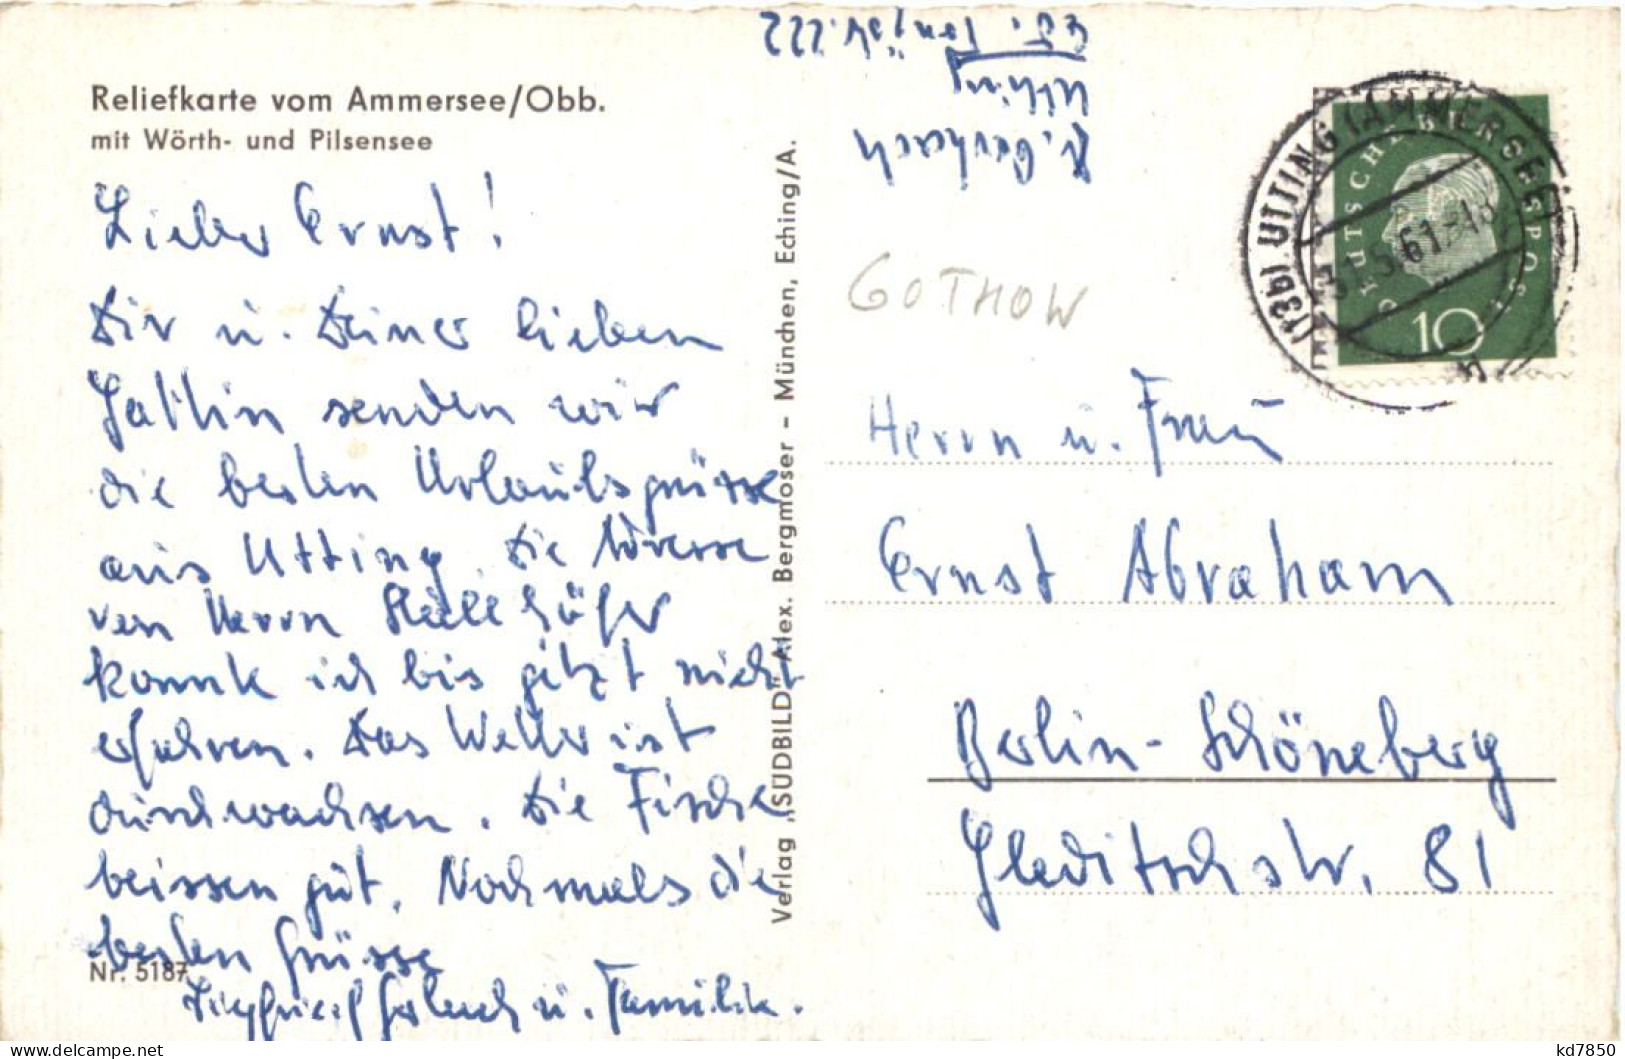 Reliefkarte vom Ammersee/Obb.
mit Wörth- und Pilsensee
Lieber Ernst!
Dir u. Deiner lieben
Gattin senden wir
die besten Urlaubsgrüsse
aus Utting. Die Adresse
von Herrn
konnte ich bis jetzt nicht
erfahren. Das Wetter ist
durchwachsen. Die Fische
beissen gut. Nochmals die
besten Grüsse
Siegfried Gerlach u. Familie.
Nr. 5187
Verlag „SÜDBILD" Alex. Bergmoser – München, Eching/A.
Gerlach
Utting
222
GOTHOW
(13b) UTTING (AMMERSEE)
31.5.61.-18
DEUTSCHE BUNDESPOST
10
Herrn u. Frau
Ernst Abraham
Berlin-Schöneberg
Gleditschstr. 81
kd7850